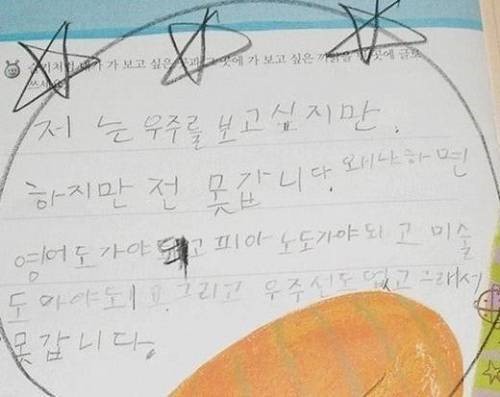 가 보고 싶은 가 보고 싶은 까닭을 곳에
저 는 우주를 보고싶지만.
하지만 전 못갑니다. 왜냐하면
영어도가야되고 피아노도가야되고 미술
도 가야되요. 그리고 우주신도 없고 그래서
못갑니다.